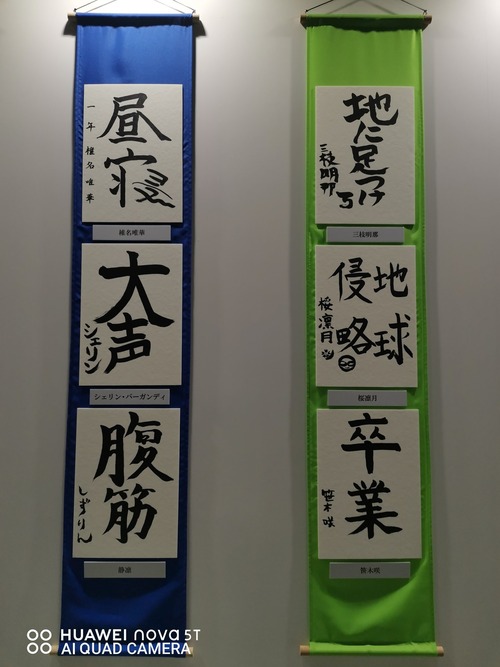 昼寝
一年 椎名唯華
椎名唯華
大声
シェリン
シェリン・バーガンディ
腹筋
しずりん
静凛
地に足つける
三枝明那
三枝明那
地球
侵略
桜凛月
桜凛月
卒業
笹木咲
笹木咲
HUAWEI nova 5T
AI QUAD CAMERA